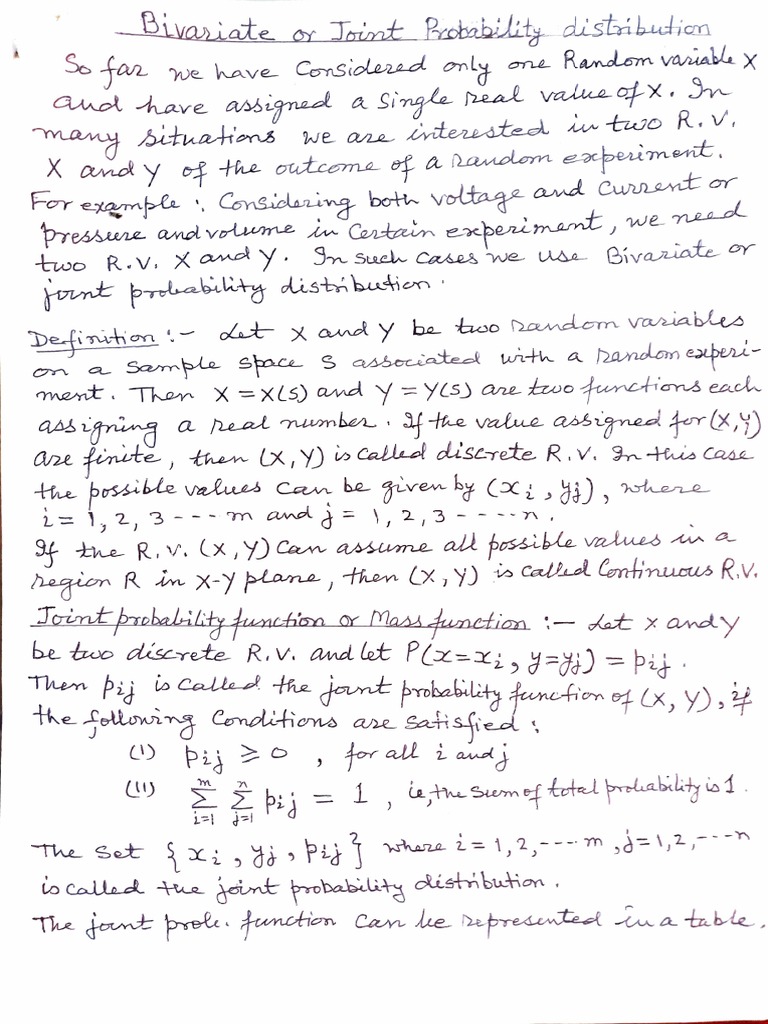 Bivariate or Joint Probability distribution
So far we have Considered only one Random variable X
and have assigned a single real value of X. In
many situations we are interested in two R.V.
X and Y of the outcome of a random experiment.
For example : Considering both voltage and current or
pressure and volume in Certain experiment, we need
two R.V. X and Y. In such cases we use Bivariate or
joint probability distribution.
Definition :- Let X and Y be two random variables
on a sample space S associated with a random experi-
ment. Then X = X(S) and Y = Y(S) are two functions each
assigning a real number. If the value assigned for (X,Y)
are finite, then (X,Y) is called discrete R.V. In this case
the possible values can be given by (xi, yj), where
i = 1, 2, 3 ---- m and j = 1, 2, 3 ----- n.
If the R.V. (X,Y) can assume all possible values in a
region R in X-Y plane, then (X,Y) is called Continuous R.V.
Joint probability function or Mass function :- Let X and Y
be two discrete R.V. and let P(x=xi, y=yj) = pij.
Then pij is called the joint probability function of (X, Y), if
the following Conditions are satisfied :
(I) pij ≥ 0 , for all i and j
(II) m∑i=1 n∑j=1 pij = 1 , ie, the sum of total probability is 1.
The set {xi, yj, pij} where i = 1, 2, ---- m , j = 1, 2, --- n
is called the joint probability distribution.
The joint prob. function can be represented in a table.